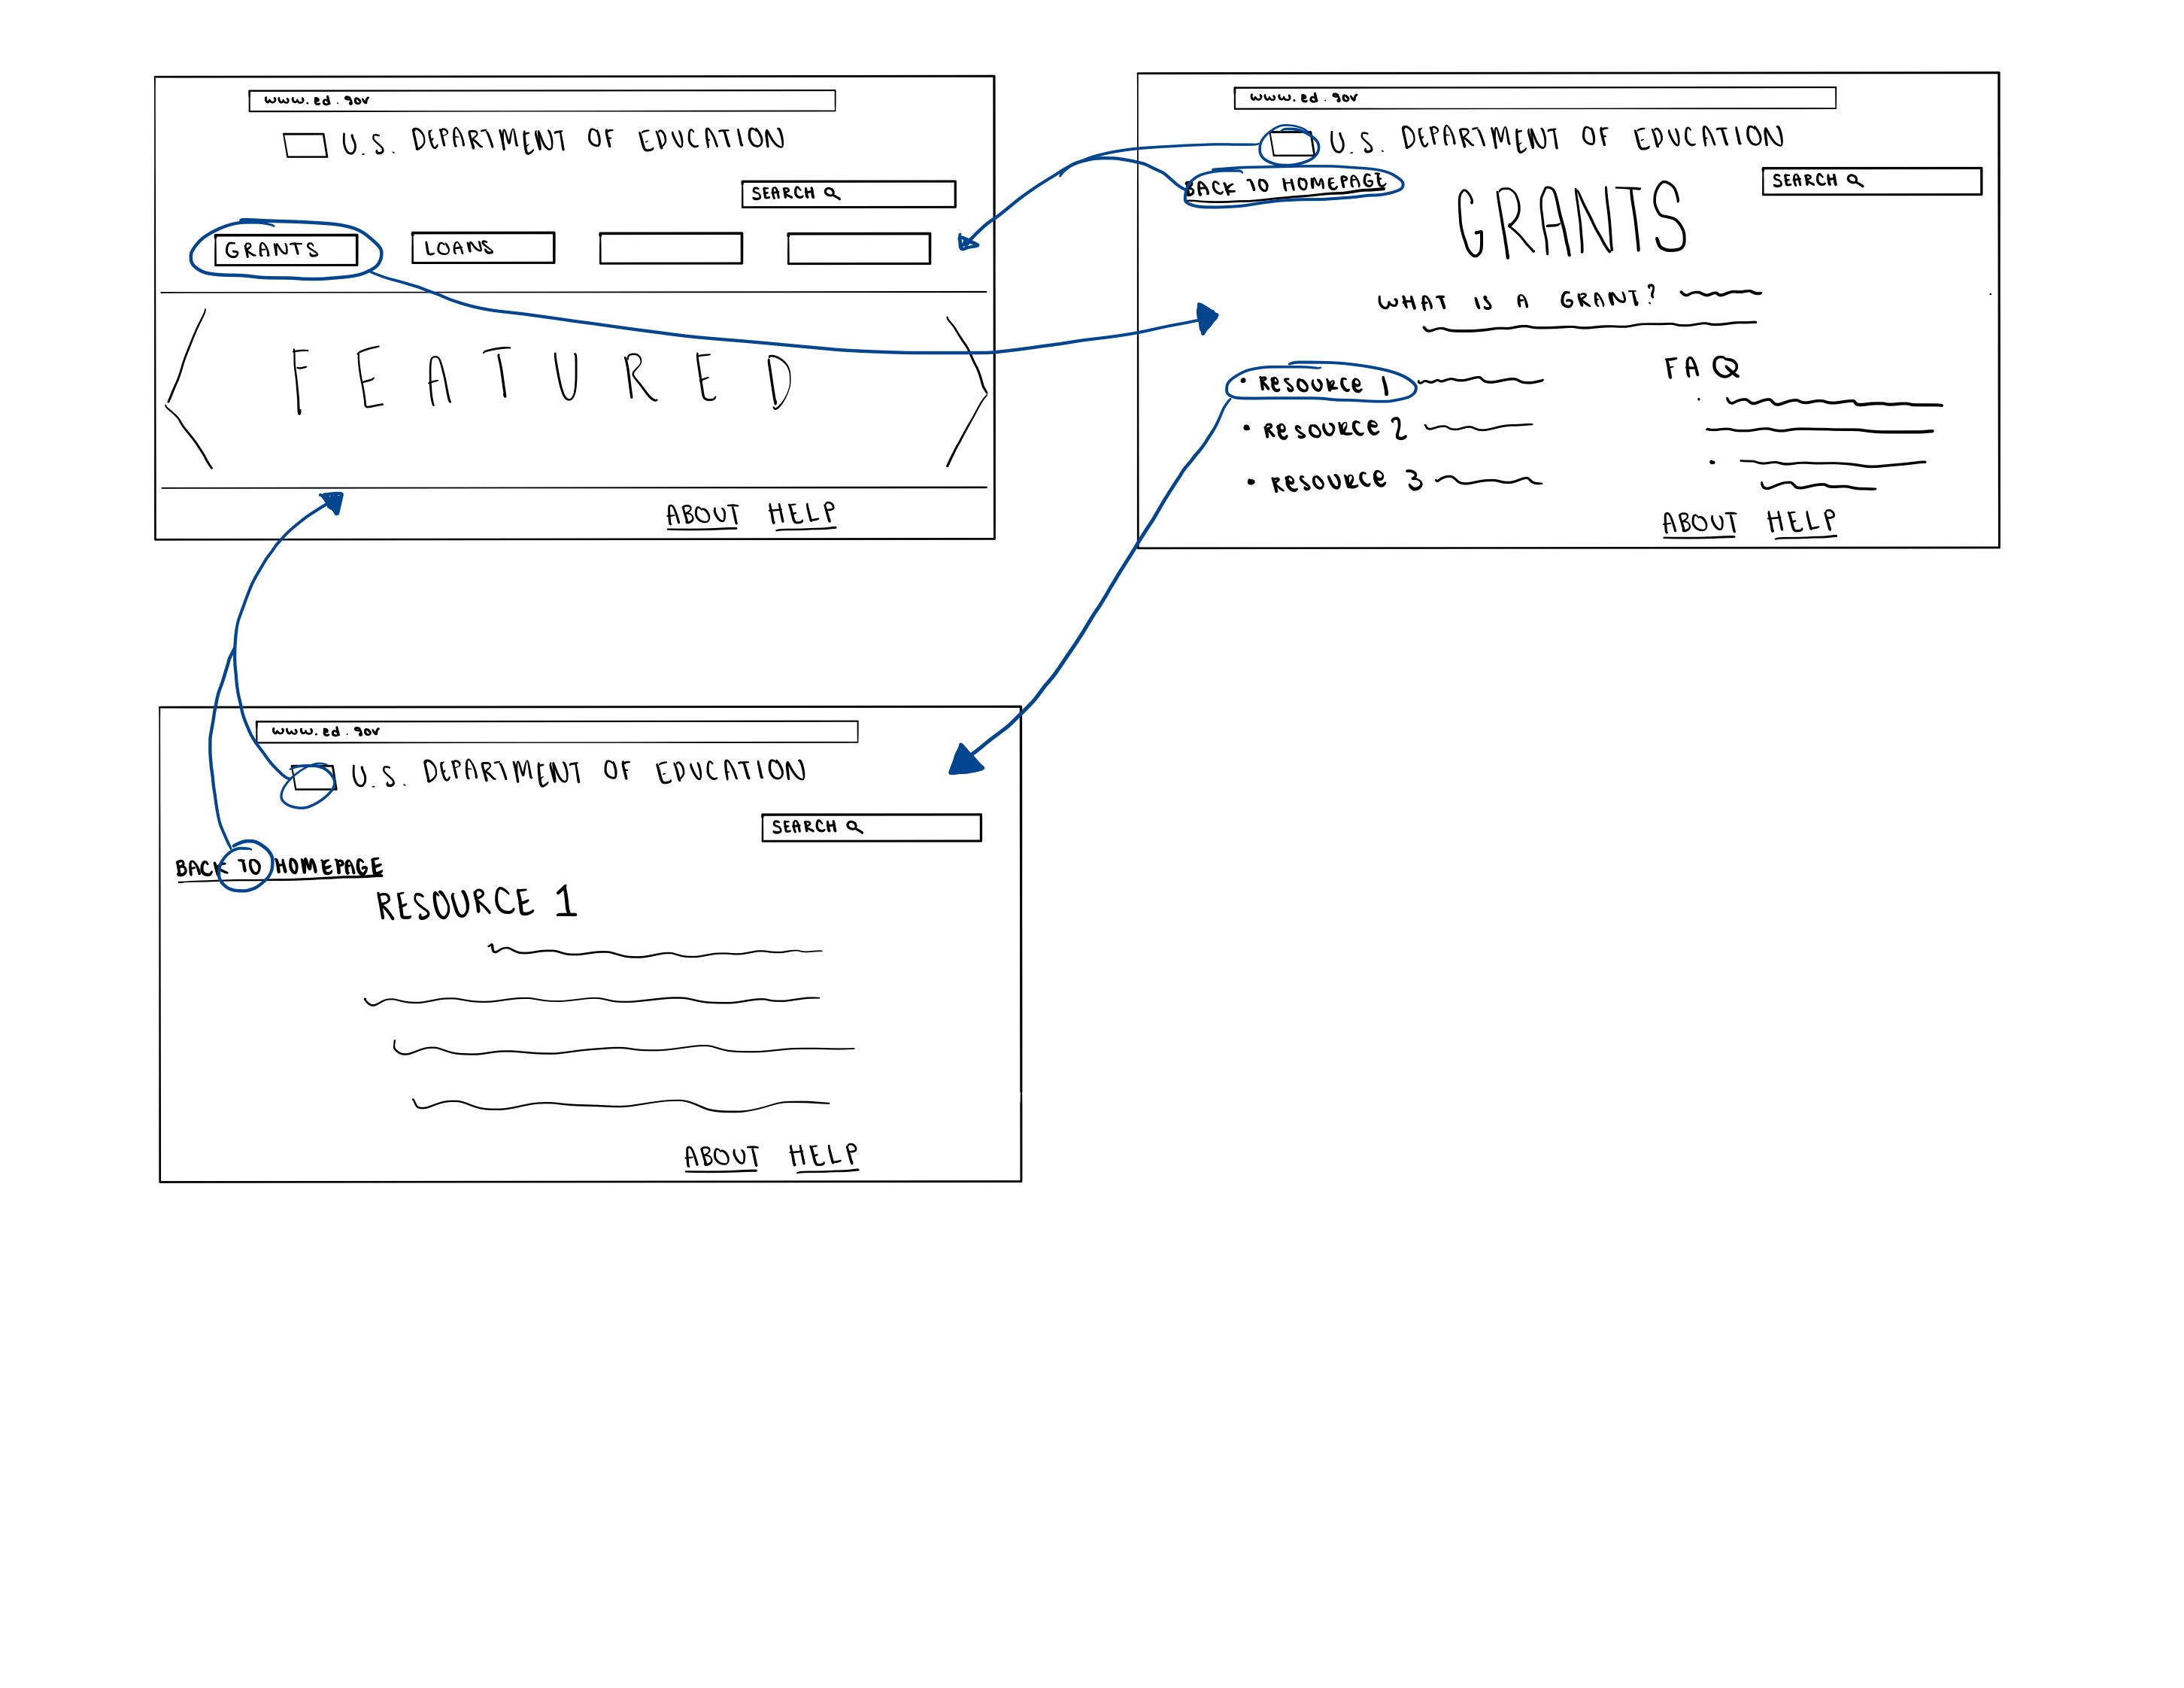 www.ed.gov
U.S. DEPARTMENT OF EDUCATION
SEARCH
GRANTS LOANS
FEATURED
ABOUT HELP
www.ed.gov
U.S. DEPARTMENT OF EDUCATION
BACK TO HOMEPAGE
SEARCH
GRANTS
WHAT IS A GRANT?
• RESOURCE 1
• RESOURCE 2
• RESOURCE 3
FAQ
ABOUT HELP
www.ed.gov
U.S. DEPARTMENT OF EDUCATION
SEARCH
BACK TO HOMEPAGE
RESOURCE 1
ABOUT HELP